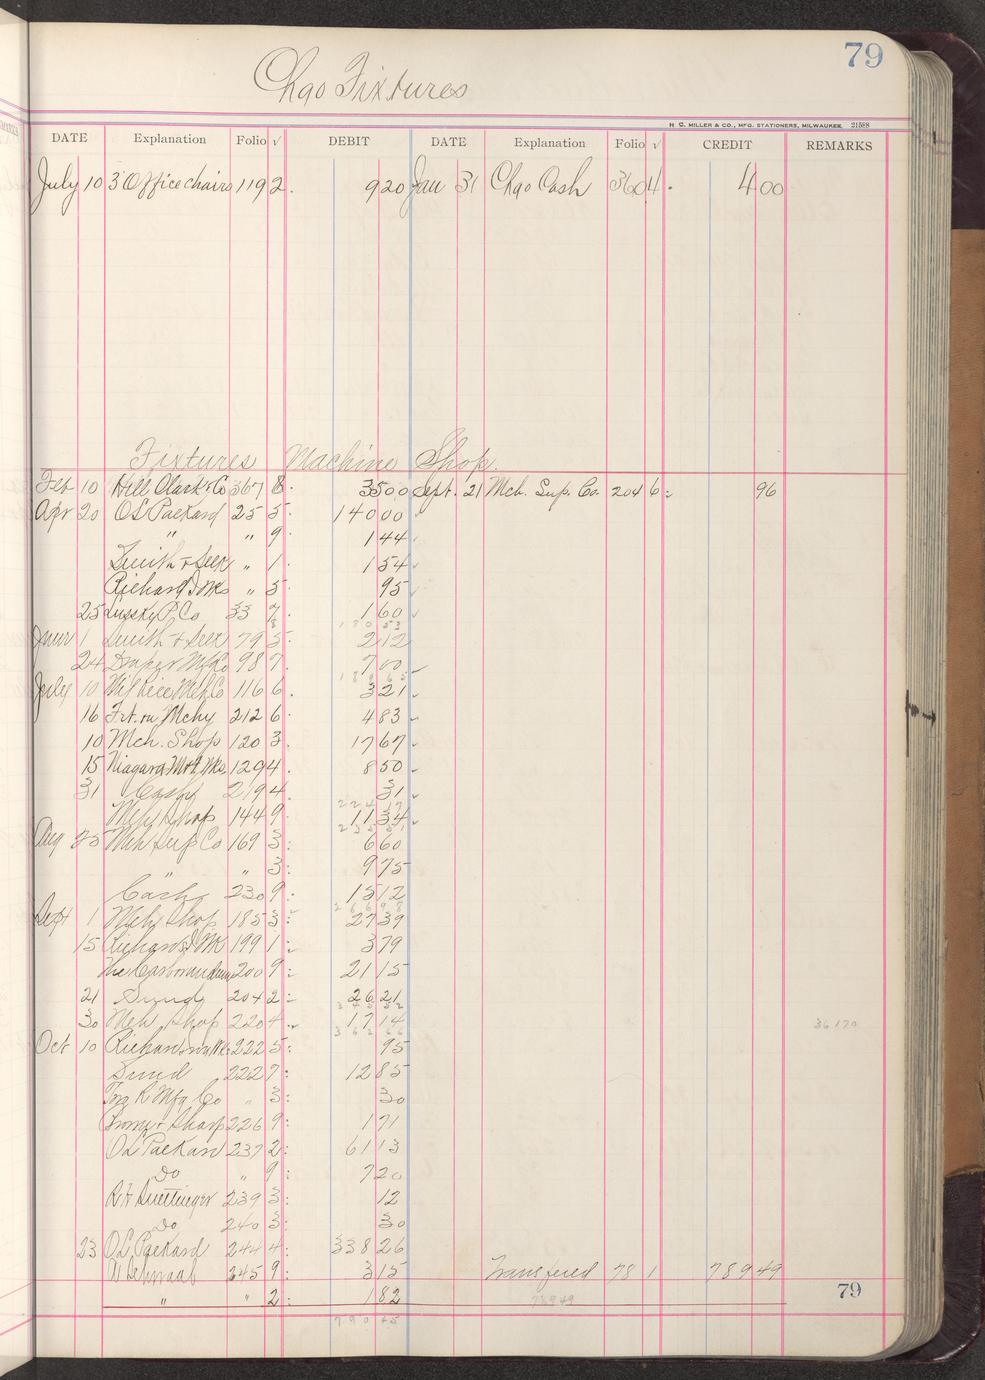 79
Chgo Fixtures
H. C. MILLER & CO., MFG. STATIONERS, MILWAUKEE. 21588
DATE Explanation Folio √ DEBIT DATE Explanation Folio √ CREDIT REMARKS
July 10 3 Office chairs 119 2 9 20 Jan 31 Chgo Cash 360 4 4 00
Fixtures Machine Shop.
Feb 10 Hill Clark & Co 367 8 35 00 Sept. 21 Mch. Sup. Co. 204 6 96
Apr 20 OL Packard 25 5 140 00
" " 9 1 44
Smith & Seek " 1 1 54
Richards " 5 95
25 P. Co 33 7 1 60
180 53
June 1 Smith & Seek 79 5 2 12
24 Draper Mfg Co 98 7 7 00
July 10 Mil Rice Mch Co 116 6 3 21
16 Frt. on Mchy 212 6 4 83
10 Mch. Shop 120 3 17 67
15 Niagara Wks 129 4 8 50
31 Cash 219 4 31
Mch Shop 144 9 11 34
Aug 25 Mch Sup Co 169 3 6 60
" 3 9 75
Cash 230 9 15 12
Sept 1 Mch Shop 185 3 27 39
15 Richards 199 1 3 79
The Carborundum 200 9 21 15
21 Sundy 204 2 26 21
30 Mch Shop 220 4 17 14
361 70
Oct 10 Richardson 222 5 95
Sund 222 7 12 85
R Mfg Co " 3 30
& Sharp 226 9 1 71
OL Packard 237 2 61 13
Do " 9 7 20
239 3 12
Do 240 3 30
23 OL Packard 244 4 338 26
A Schwaab 245 9 3 15 Transfered 78 1 789 49
" " 2 1 82 789 49
79
790 45